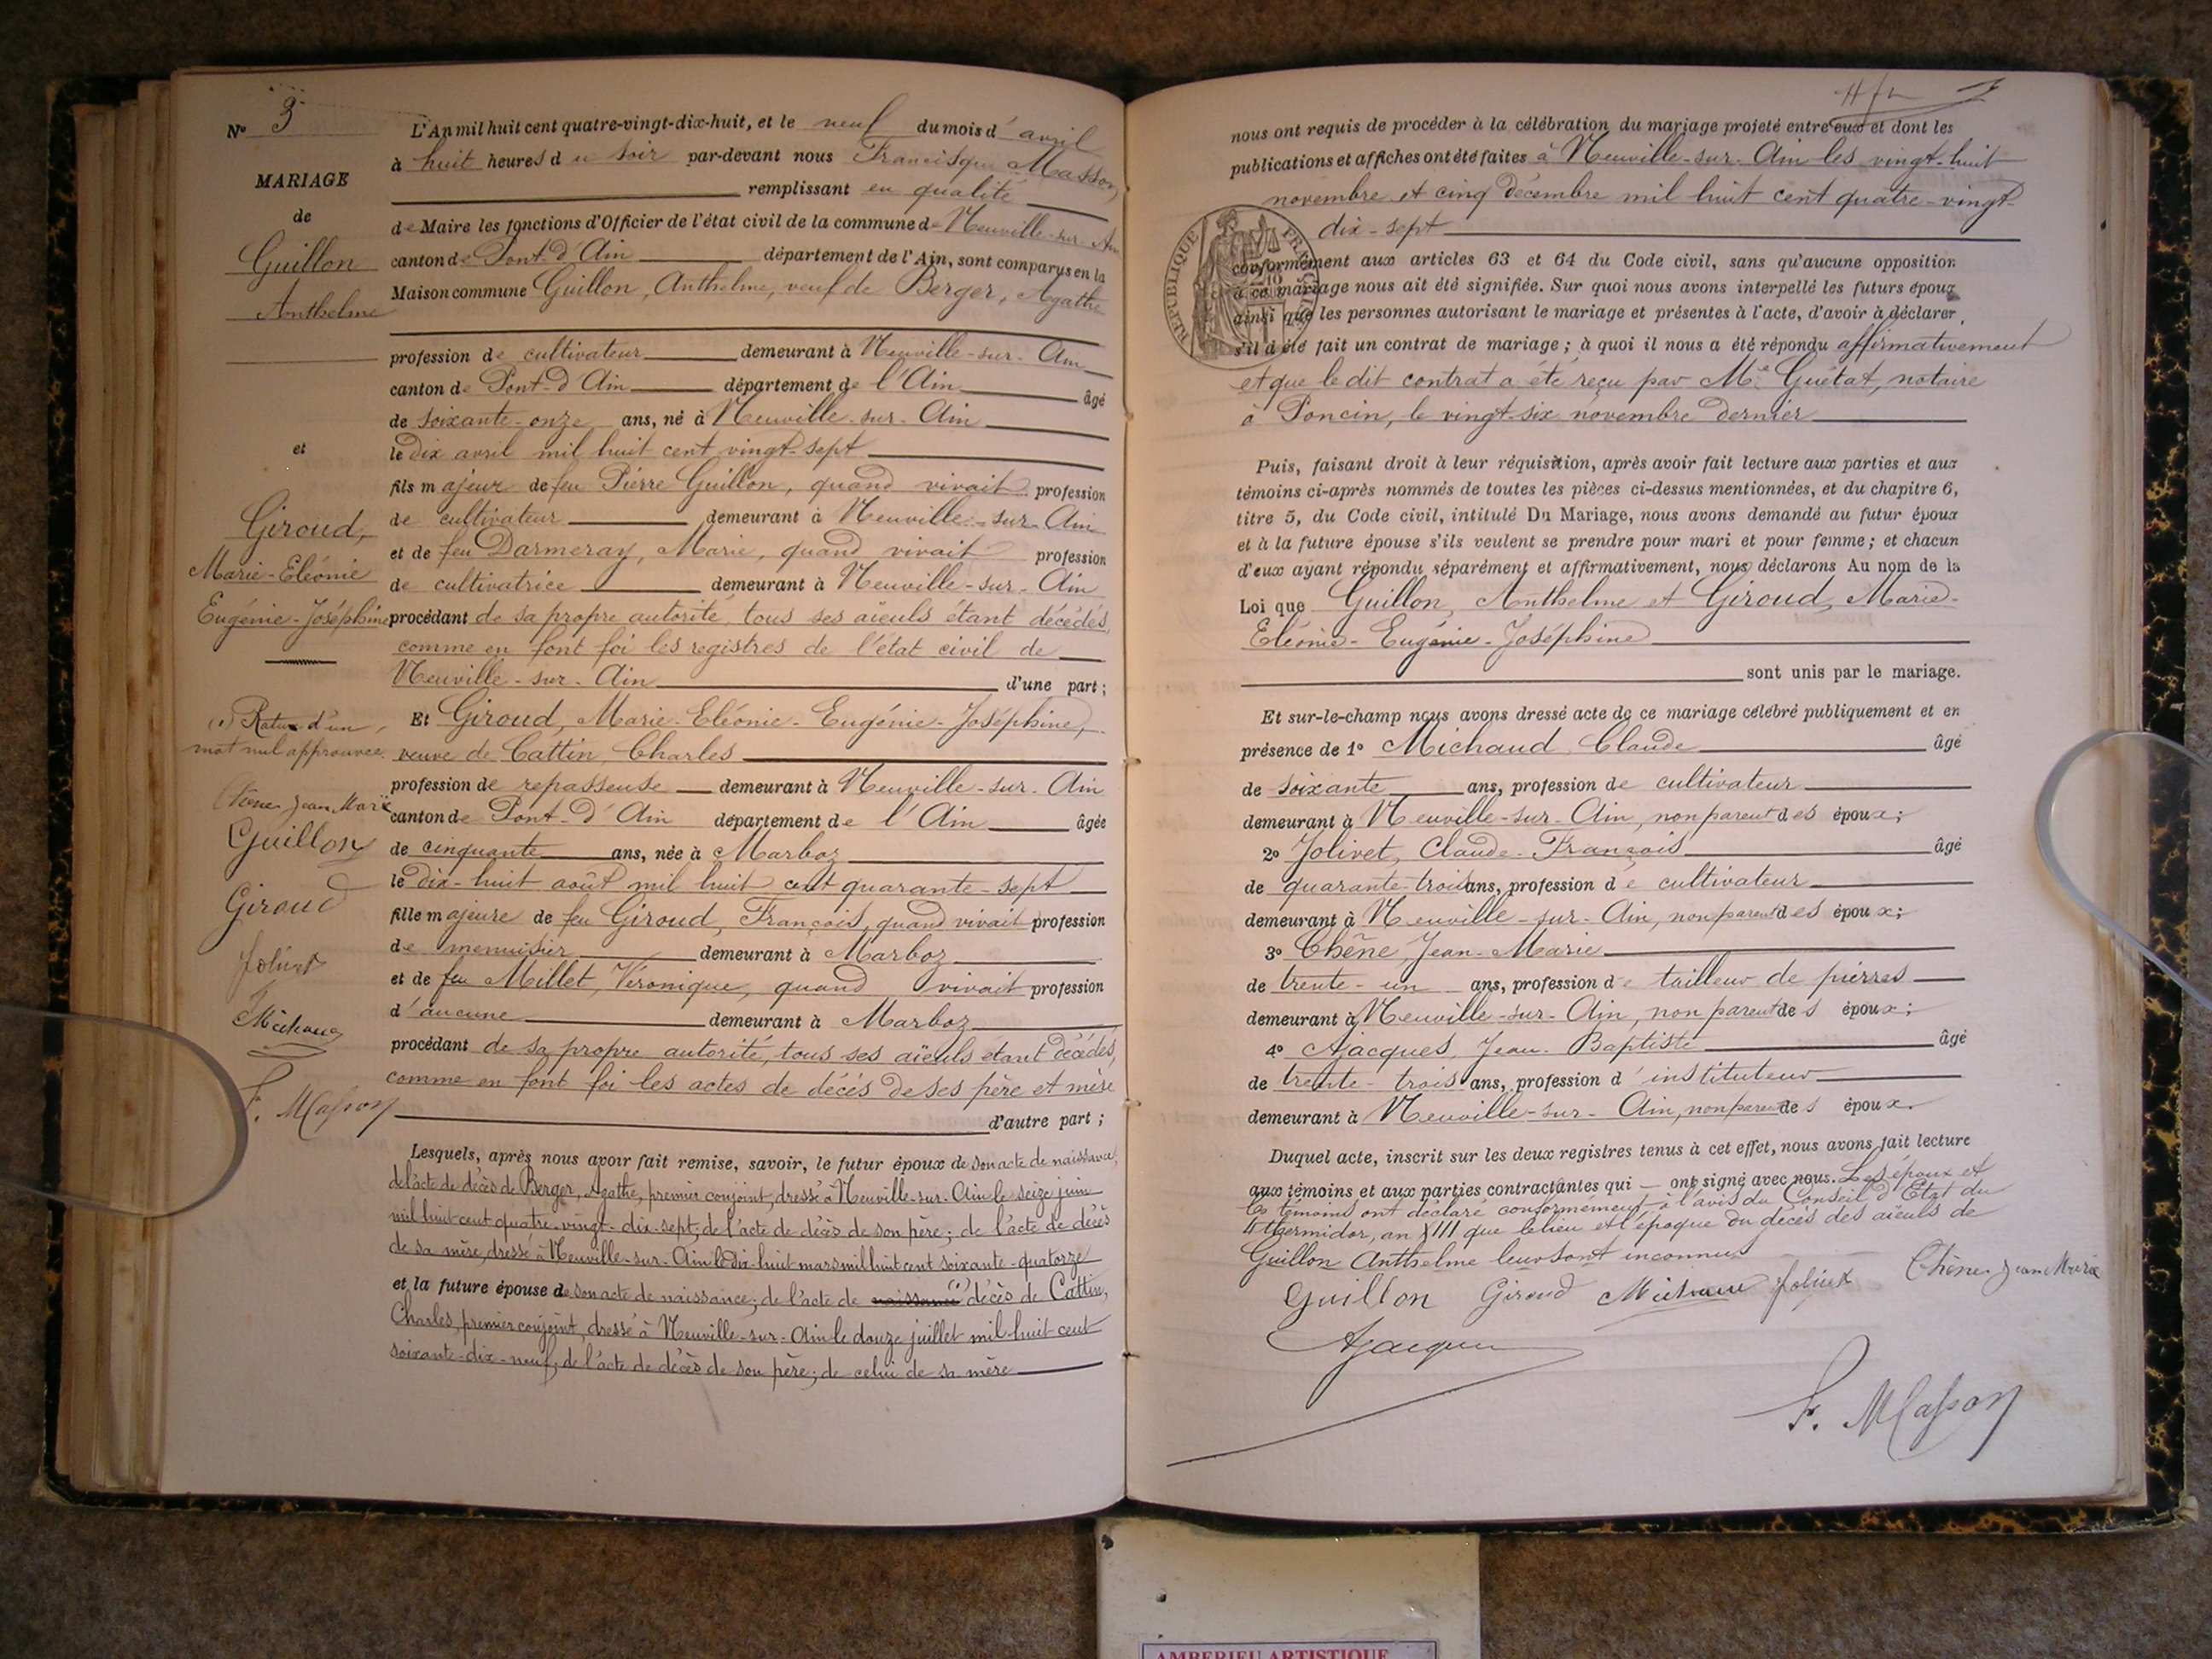 N° 3
MARIAGE
de
Guillon
Anthelme
et
Giroud,
Marie-Eléonie
Eugénie-Joséphine
(1) Rature d'un
mot nul approuvée.
Chêne Jean Marie
Guillon
Giroud
Jolivet
Michaud
F. Masson
L'An mil huit cent quatre-vingt-dix-huit, et le neuf du mois d'avril
à huit heures du soir par-devant nous Francisque Masson,
remplissant en qualité
de Maire les fonctions d'Officier de l'état civil de la commune de Neuville-sur-Ain
canton de Pont-d'Ain département de l'Ain, sont comparus en la
Maison commune Guillon, Anthelme, veuf de Berger, Agathe
profession de cultivateur demeurant à Neuville-sur-Ain
canton de Pont-d'Ain département de l'Ain âgé
de soixante-onze ans, né à Neuville-sur-Ain
le dix avril mil huit cent vingt-sept
fils majeur de feu Pierre Guillon, quand vivait profession
de cultivateur demeurant à Neuville-sur-Ain
et de feu Darmeray, Marie, quand vivait profession
de cultivatrice demeurant à Neuville-sur-Ain
procédant de sa propre autorité, tous ses aïeuls étant décédés,
comme en font foi les registres de l'état civil de
Neuville-sur-Ain d'une part;
Et Giroud, Marie-Eléonie-Eugénie-Joséphine,
veuve de Cattin, Charles
profession de repasseuse demeurant à Neuville-sur-Ain
canton de Pont-d'Ain département de l'Ain âgée
de cinquante ans, née à Marboz
le dix-huit août mil huit cent quarante-sept
fille majeure de feu Giroud, François, quand vivait profession
de menuisier demeurant à Marboz
et de feu Millet, Véronique, quand vivait profession
d'aucune demeurant à Marboz
procédant de sa propre autorité, tous ses aïeuls étant décédés,
comme en font foi les actes de décès de ses père et mère
d'autre part;
Lesquels, après nous avoir fait remise, savoir, le futur époux de son acte de naissance,
de l'acte de décès de Berger, Agathe, premier conjoint, dressé à Neuville-sur-Ain le seize juin
mil huit cent quatre-vingt-dix-sept; de l'acte de décès de son père; de l'acte de décès
de sa mère, dressé à Neuville-sur-Ain le dix-huit mars mil huit cent soixante-quatorze
et la future épouse de son acte de naissance; de l'acte de naissance (1) décès de Cattin,
Charles, premier conjoint, dressé à Neuville-sur-Ain le douze juillet mil huit cent
soixante-dix-neuf; de l'acte de décès de son père; de celui de sa mère
nous ont requis de procéder à la célébration du mariage projeté entre eux et dont les
publications et affiches ont été faites à Neuville-sur-Ain les vingt-huit
novembre et cinq décembre mil huit cent quatre-vingt-
dix-sept
RÉPUBLIQUE FRANÇAISE
conformément aux articles 63 et 64 du Code civil, sans qu'aucune opposition
à ce mariage nous ait été signifiée. Sur quoi nous avons interpellé les futurs époux
ainsi que les personnes autorisant le mariage et présentes à l'acte, d'avoir à déclarer
s'il a été fait un contrat de mariage; à quoi il nous a été répondu affirmativement
et que le dit contrat a été reçu par Me Guétat, notaire
à Poncin, le vingt-six novembre dernier
Puis, faisant droit à leur réquisition, après avoir fait lecture aux parties et aux
témoins ci-après nommés de toutes les pièces ci-dessus mentionnées, et du chapitre 6,
titre 5, du Code civil, intitulé Du Mariage, nous avons demandé au futur époux
et à la future épouse s'ils veulent se prendre pour mari et pour femme; et chacun
d'eux ayant répondu séparément et affirmativement, nous déclarons Au nom de la
Loi que Guillon, Anthelme et Giroud, Marie-
Eléonie-Eugénie-Joséphine
sont unis par le mariage.
Et sur-le-champ nous avons dressé acte de ce mariage célébré publiquement et en
présence de 1° Michaud, Claude âgé
de soixante ans, profession de cultivateur
demeurant à Neuville-sur-Ain, non parent des époux;
2° Jolivet, Claude-François âgé
de quarante-trois ans, profession de cultivateur
demeurant à Neuville-sur-Ain, non parent des époux;
3° Chêne, Jean-Marie
de trente-un ans, profession de tailleur de pierres
demeurant à Neuville-sur-Ain, non parent des époux;
4° Ajacques, Jean-Baptiste âgé
de trente-trois ans, profession d'instituteur
demeurant à Neuville-sur-Ain, non parent des époux.
Duquel acte, inscrit sur les deux registres tenus à cet effet, nous avons fait lecture
aux témoins et aux parties contractantes qui ont signé avec nous. Les époux et
les témoins ont déclaré conformément à l'avis du Conseil d'Etat du
4 thermidor, an XIII que le lieu et l'époque du décès des aïeuls de
Guillon Anthelme leur sont inconnus
Guillon Giroud Michaud Jolivet Chêne Jean Marie
Ajacques
F. Masson
AMBERIEU ARTISTIQUE